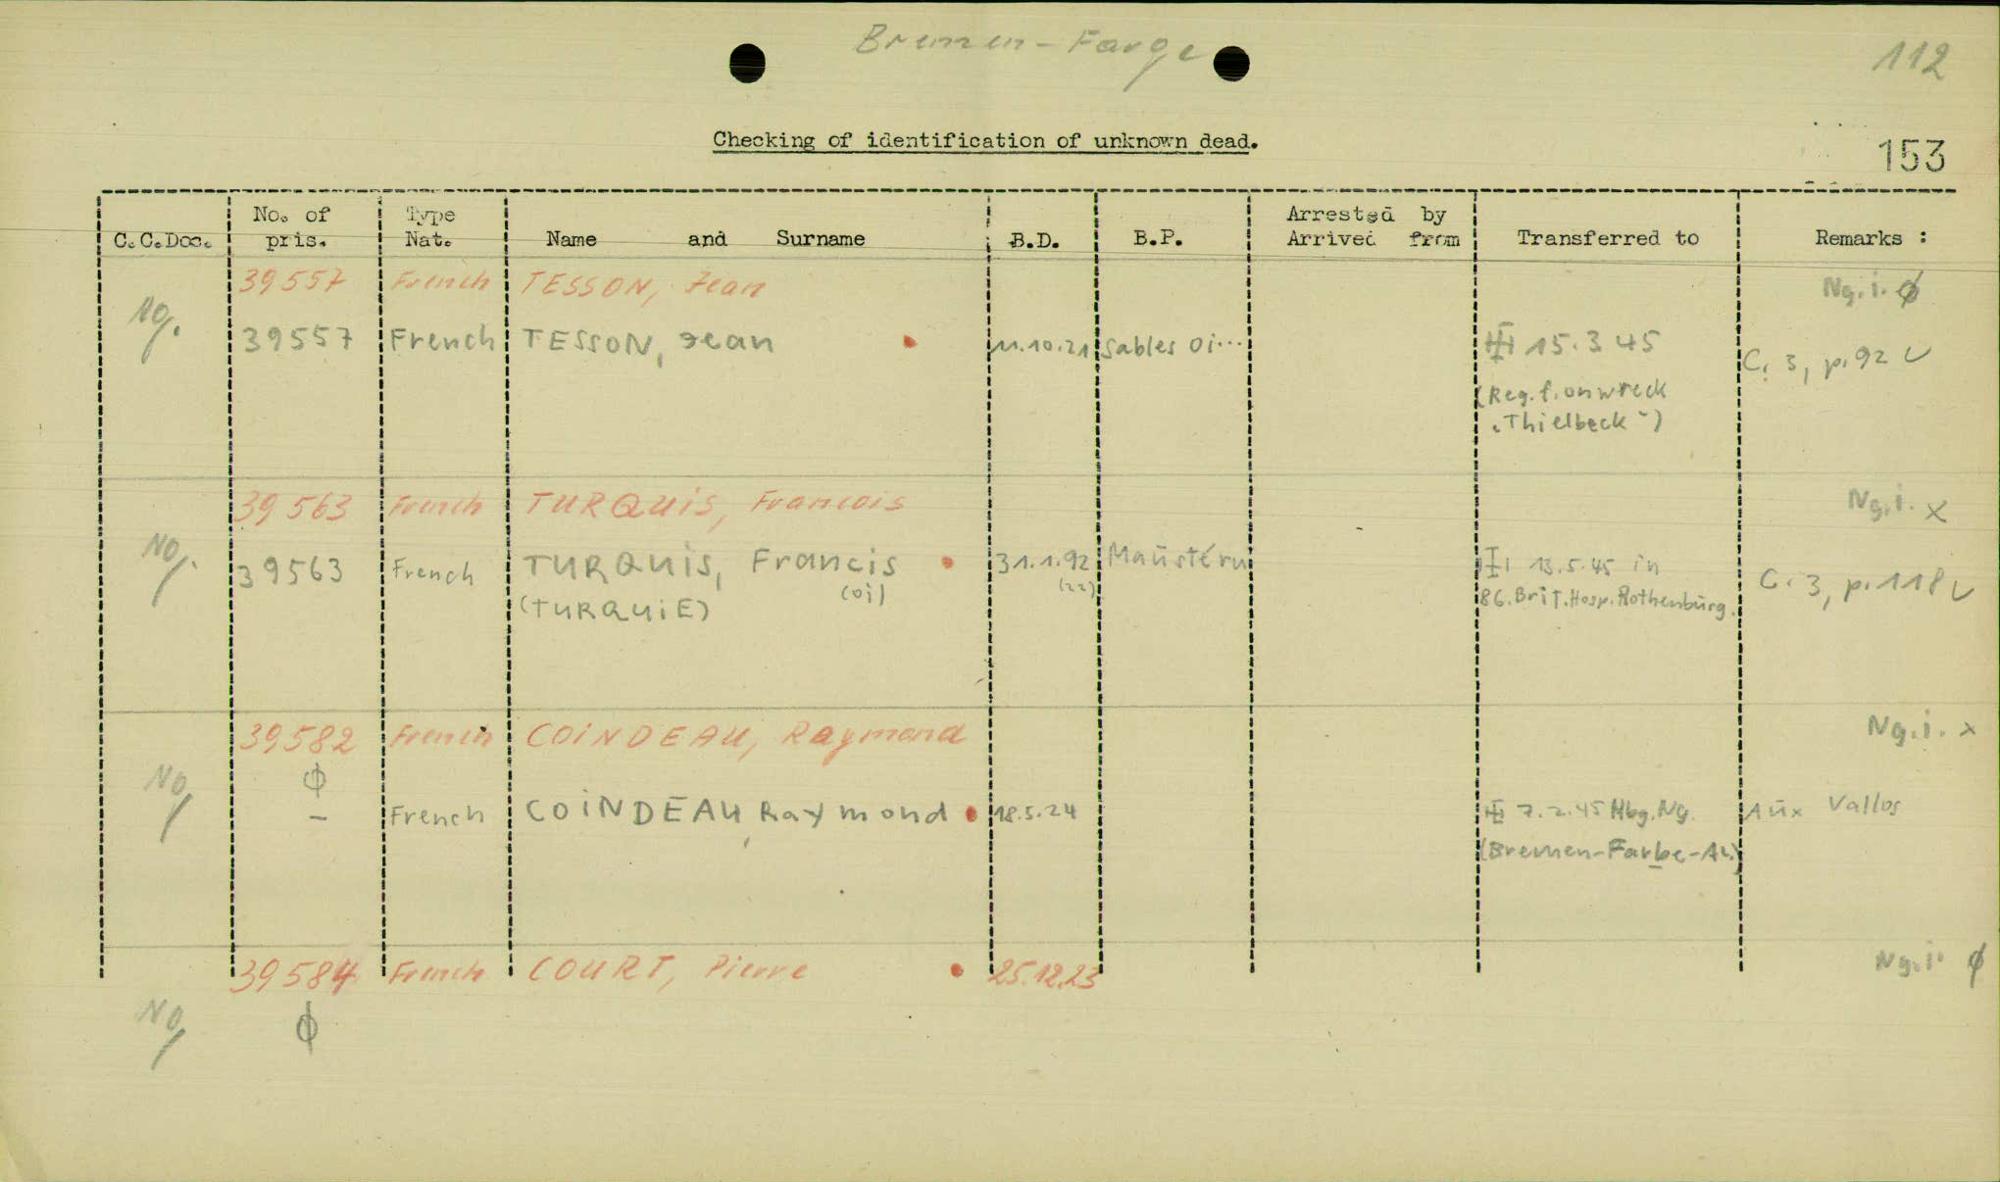 Bremen-Farge
112
Checking of identification of unknown dead.
153
C.C.Doc. No. of pris. Type Nat. Name and Surname B.D. B.P. Arrested by Arrived from Transferred to Remarks :
39557 French TESSON, Jean Ng.i. ϕ
No.
39557 French TESSON, Jean 11.10.21 Sables Oi... 15.3 45 C. 3, p.92
(Reg. f. on wreck
"Thielbeck")
39563 French TURQUiS, Francois Ng.i. x
No.
39563 French TURQUiS, Francis 31.1.92 13.5.45 in C. 3, p.118
(TURQUiE) (oi) (22) 86.Brit.Hosp.Rothenburg.
39582 French COiNDEAU, Raymond Ng.i. x
No ϕ
- French COiNDEAU, Raymond 18.5.24 7.2.45 Hbg.Ng. Aux Vallos
(Bremen-Farbe-Al.)
39584 French COURT, Pierre 25.12.23 Ng.i. ϕ
No ϕ